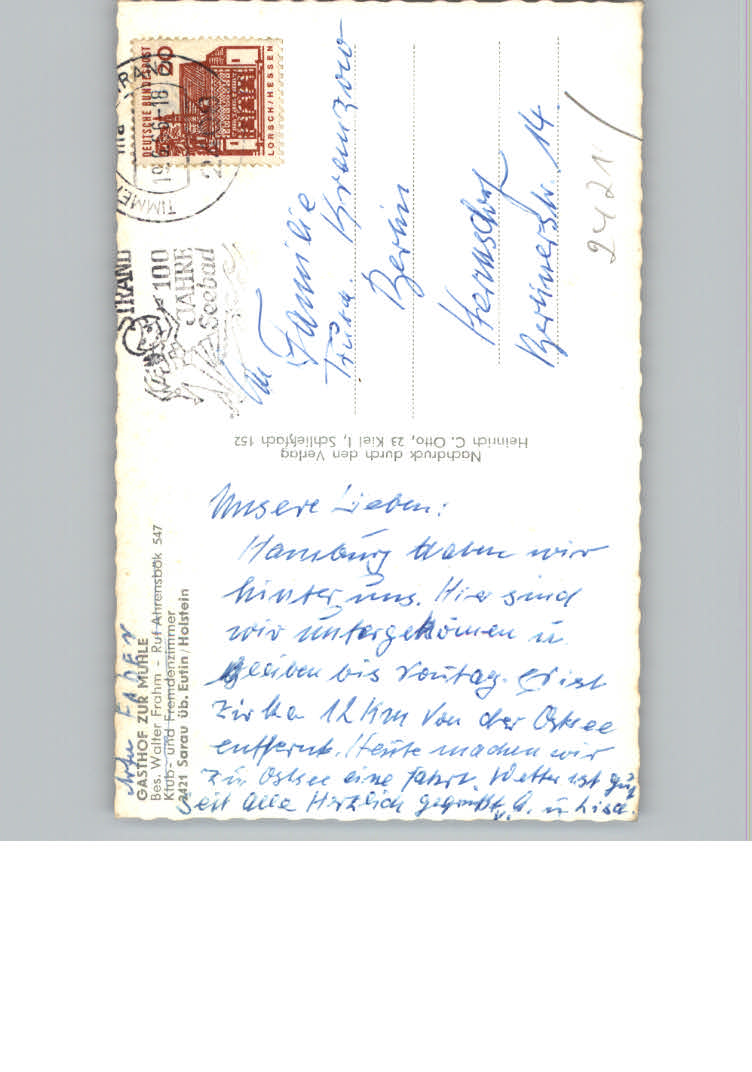 DEUTSCHE BUNDESPOST
20
LORSCH/HESSEN
TIMMEN
STRAND
100
JAHRE
Seebad
An
Familie
Kranzow
Berlin
Hermsdorf
Berlinerstr. 14
2421
Nachdruck durch den Verlag
Heinrich C. Otto, 23 Kiel 1, Schließfach 152
GASTHOF ZUR MÜHLE
Bes. Walter Frahm - Ruf Ahrensbök 547
Klub- und Fremdenzimmer
2421 Sarau üb. Eutin/Holstein
Unsere Lieben:
Hamburg haben wir
hinter uns. Hier sind
wir untergekommen u.
bleiben bis Sontag. Es ist
zirka 12 Km von der Ostsee
entfernt. Heute machen wir
zur Ostsee eine fahrt. Wetter ist gut
Seit Alle Herzlich gegrüßt v. A. u Lisa.